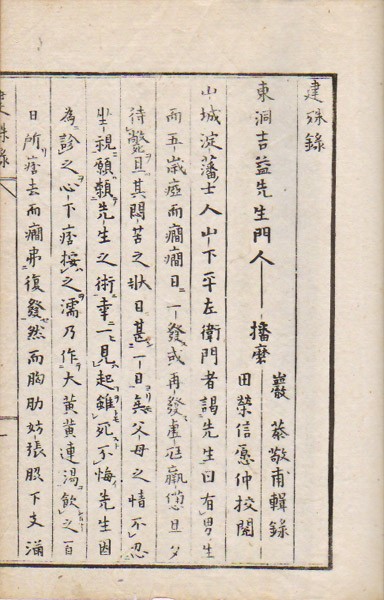 建殊錄
東洞吉益先生門人 播磨
巖 恭敬甫輯錄
田榮信愿仲校閲
山城淀藩士人山下平左衛門者謁先生曰有男生
而五歳瘂而癇癇日一發或再發虚尫羸憊旦夕
待斃且其悶苦之狀日甚一日矣父母之情不忍
坐視願賴先生之術幸一見起雖死不悔先生因
為診之心下痞按之濡乃作大黃黃連湯飲之百
日所痞去而癇弗復發然而胸肋妨張脇下支滿
建殊錄